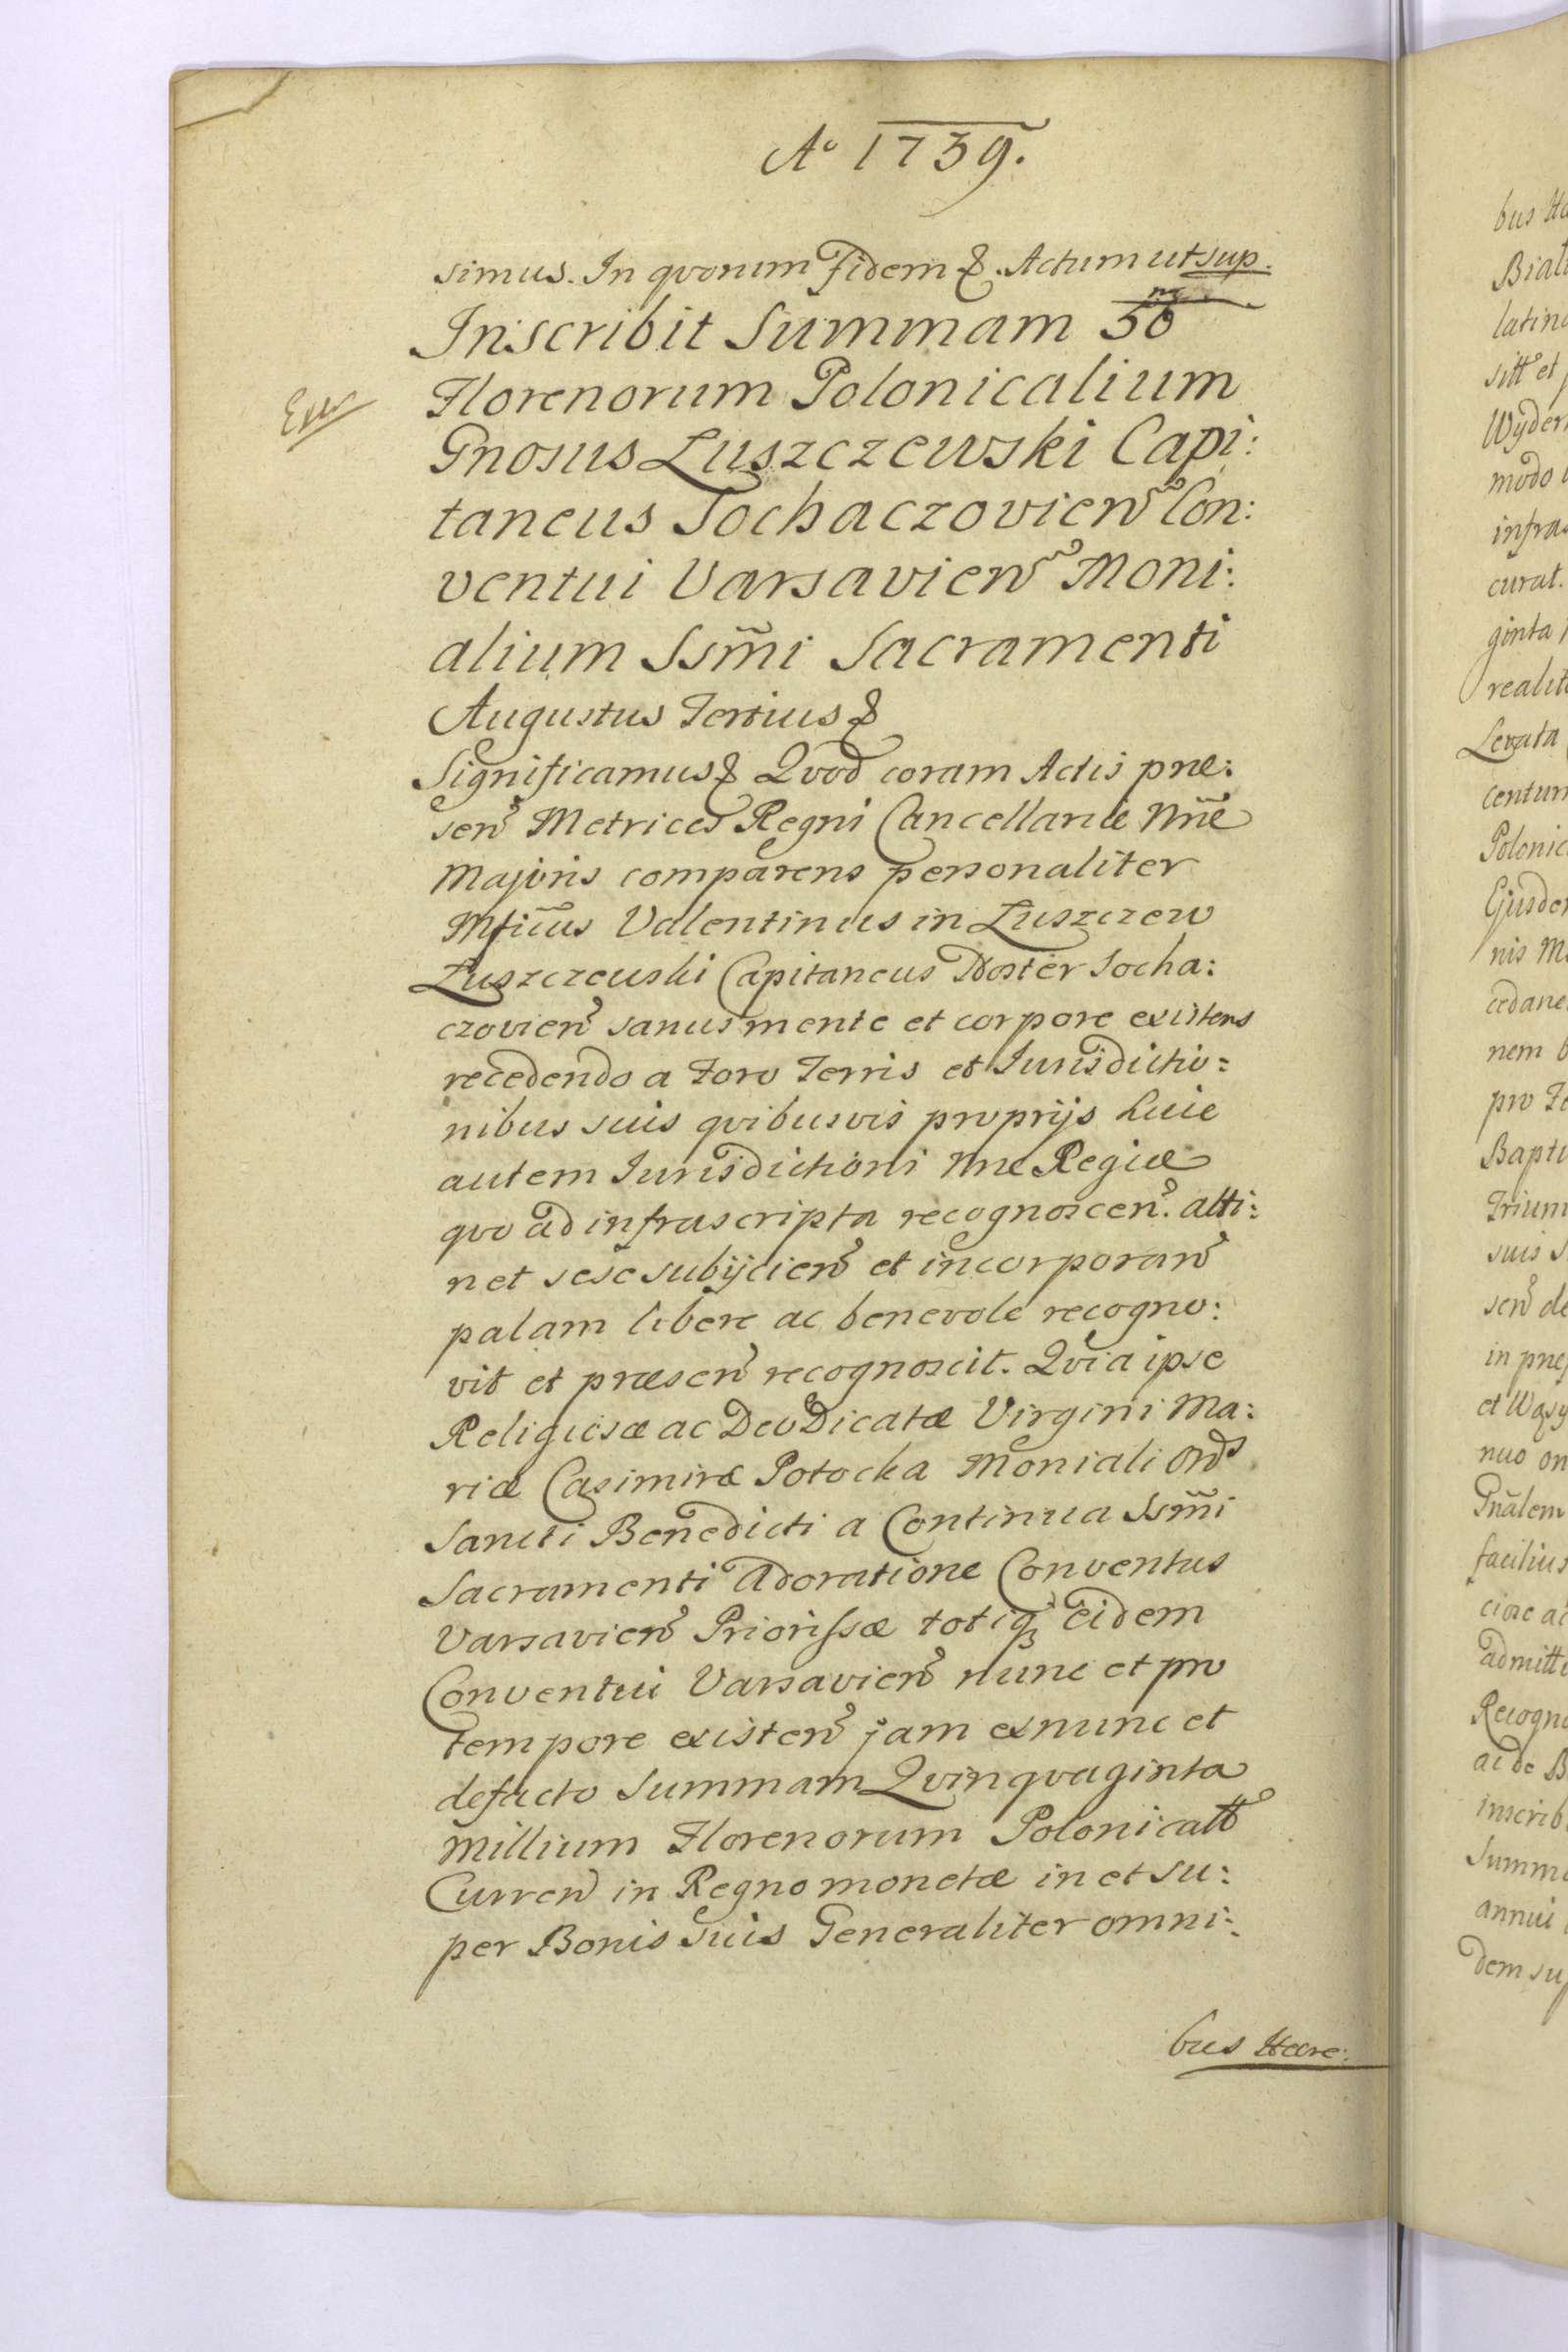 Aº 1739.
simus. In qvorum Fidem &. Actum ut sup.
Inscribit Summam 50 m
Florenorum Polonicalium
Gnosus Luszczewski Capi:
taneus Sochaczovien Con:
ventui Varsavien Moni:
alium Ssm̃i Sacramenti
Augustus Tertius &
Significamus & Qvod coram Actis præ:
sen Metrices Regni Cancellariæ Nræ
Majoris comparens personaliter
Mficus Valentinus in Luszczew
Luszczewski Capitaneus Noster Socha:
czovien sanus mente et corpore existens
recedendo a Foro Terris et Jurisdictio:
nibus suis qvibusvis proprijs huic
autem Jurisdictioni Nræ Regiæ
qvo ad infrascripta recognoscen. atti:
net sese subijcien et incorporan
palam libere ac benevole recogno:
vit et præsen recognoscit. Qvia ipse
Religiosæ ac Deo Dicatæ Virgini Ma:
riæ Casimiræ Potocka Moniali Ords
Sancti Benedicti a Continua Ssm̃i
Sacramenti Adoratione Conventus
Varsavien Priorissæ totiq3 eidem
Conventui Varsavien nunc et pro
tempore existen jam ex nunc et
defacto Summam Qvinqvaginta
Millium Florenorum Polonicall
Curren in Regno monetæ in et su:
per Bonis suis Generaliter omni:
bus Hære:
bus Hæ
latin
sitt et
modo
infra
curat.
ginta
realit
Levata
centum
Polonic
Ejusdem
nis M
cedane
nem
pro
Bapti
Trium
suis
sen de
in
nuo
Gnalem
facilius
admitt
Recogno
ac de B
inscrib
Summa
annui
dem sup